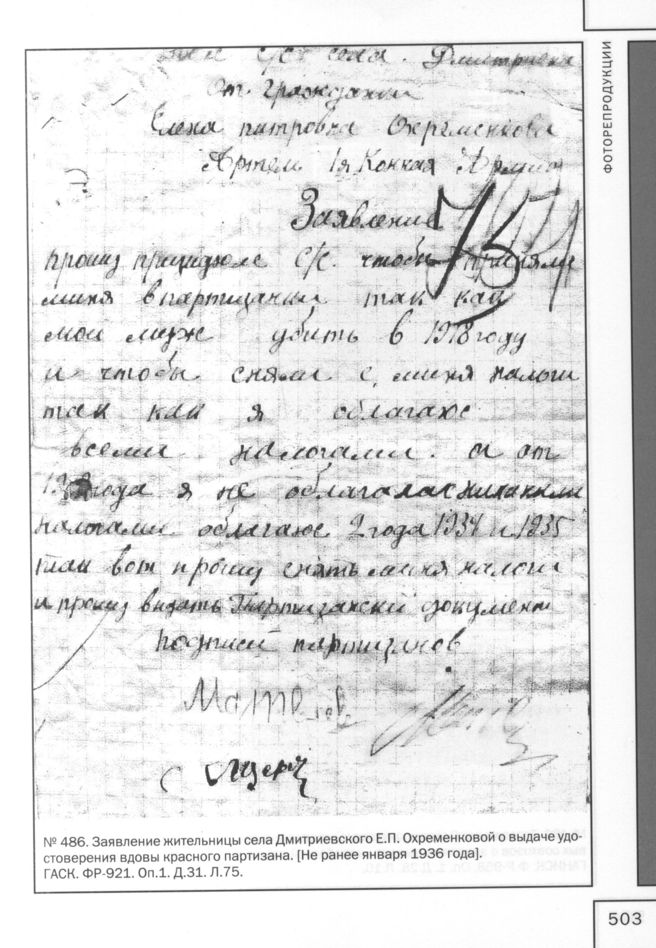 ФОТОРЕПРОДУКЦИИ
с/с села. Дмитриевка
От. граждански
Елена питровна Охременкова
Артем 1я Конная Армия
Заявление
прошу призидюме С/С. чтобы приняли
миня впартизаньи так как
мои муж убить в 1918 году
и чтобы сняли с. миня налоги
так как я облагаюс
всеми налогами. а от
года я не облагалас никакими
налогами облагаюс 2 года 1934 и 1935
так вот прошу снять миня налоги
и прошу выдать Партизански документ
подписи партизанов
№ 486. Заявление жительницы села Дмитриевского Е.П. Охременковой о выдаче удо-
стоверения вдовы красного партизана. [Не ранее января 1936 года].
ГАСК. ФР-921. Оп.1. Д.31. Л.75.
503